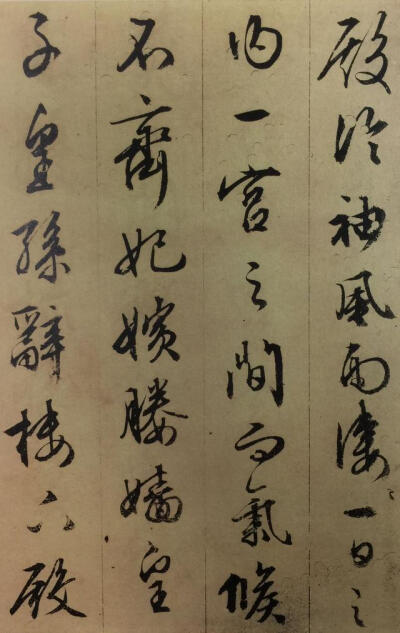 殿冷袖風雨淒一日之
内一宮之間而氣候
不齊妃嬪媵嬙皇
子皇孫辭樓下殿